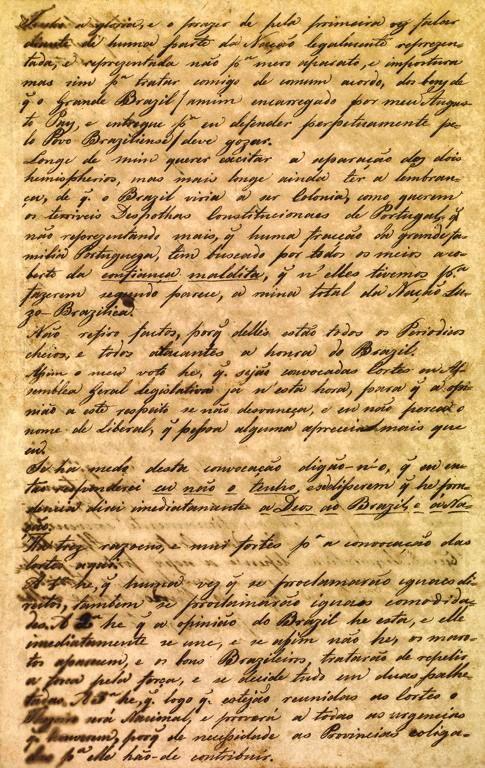 Tenho a gloria, e o prazer de pela primeira vez fallar
diante de huma parte da Nação legalmente reprezen-
tada, e reprezentada não pª mero aparato, e impostura
mas sim pª tratar comigo de comum acordo, dos bens de
q̃ o Grande Brazil / assim encarregado por meu Augus-
to Pay, e entregue pª eu defender perpetuamente pe-
lo Povo Braziliense / deve gozar.
Longe de mim querer excitar a separação dos dois
hemispherios, mas mais longe ainda ter a lembran-
ça, de q̃. o Brazil viria a ser Colonia, como querem
os terriveis Despothas Constitucionaes de Portugal, q̃
não reprezentando mais, q̃ huma fracção da grande fa-
milia Portugueza, tem buscado por todos os meios a co-
berto da confiança maldita, q̃ n'elles tivemos pª
fazerem segundo parece, a ruina total da Nação Lu-
zo-Brazilica.
Não refiro factos, porq̃ delles estão todos os Periodicos
cheios, e todos atacantes a honra do Brazil.
Assim o meu voto he, q̃. sejão convocadas Cortes ou As-
semblea Geral Legislativa já n'esta hora, para q̃ a opi-
nião a este respeito se não desvaneça, e eu não perca o
nome de Liberal, q̃ pessoa alguma aprecia mais que
eu.
Se ha medo desta convocação digão-n'o, q̃ eu en-
tão responderei eu não o tenho, e se disserem q̃ he pru-
dencia direi imediatamente a Deos ao Brazil, e á Na-
ção.
Ha trez razoens, e mui fortes pª a convocação das
Cortes aqui.
A 1ª he, q̃ huma vez q̃ se proclamarão iguaes di-
reitos, tambem se proclamarão iguaes comodida-
des. A 2ª he q̃ a opinião do Brazil he esta, e elle
imediatamente se une, e se assim não he, os maro-
tos aparecem, e os bons Brazileiros, tratarão de repelir
a força pela força, e se decide tudo em duas palhe-
tadas. A 3ª he, q̃. logo q̃. estejão reunidas as Cortes o
será Nacional, e proverá a todas as urgencias
q̃ houverem, porq̃ de necessidade as Provincias coliga-
das pª elle hão-de contribuir.